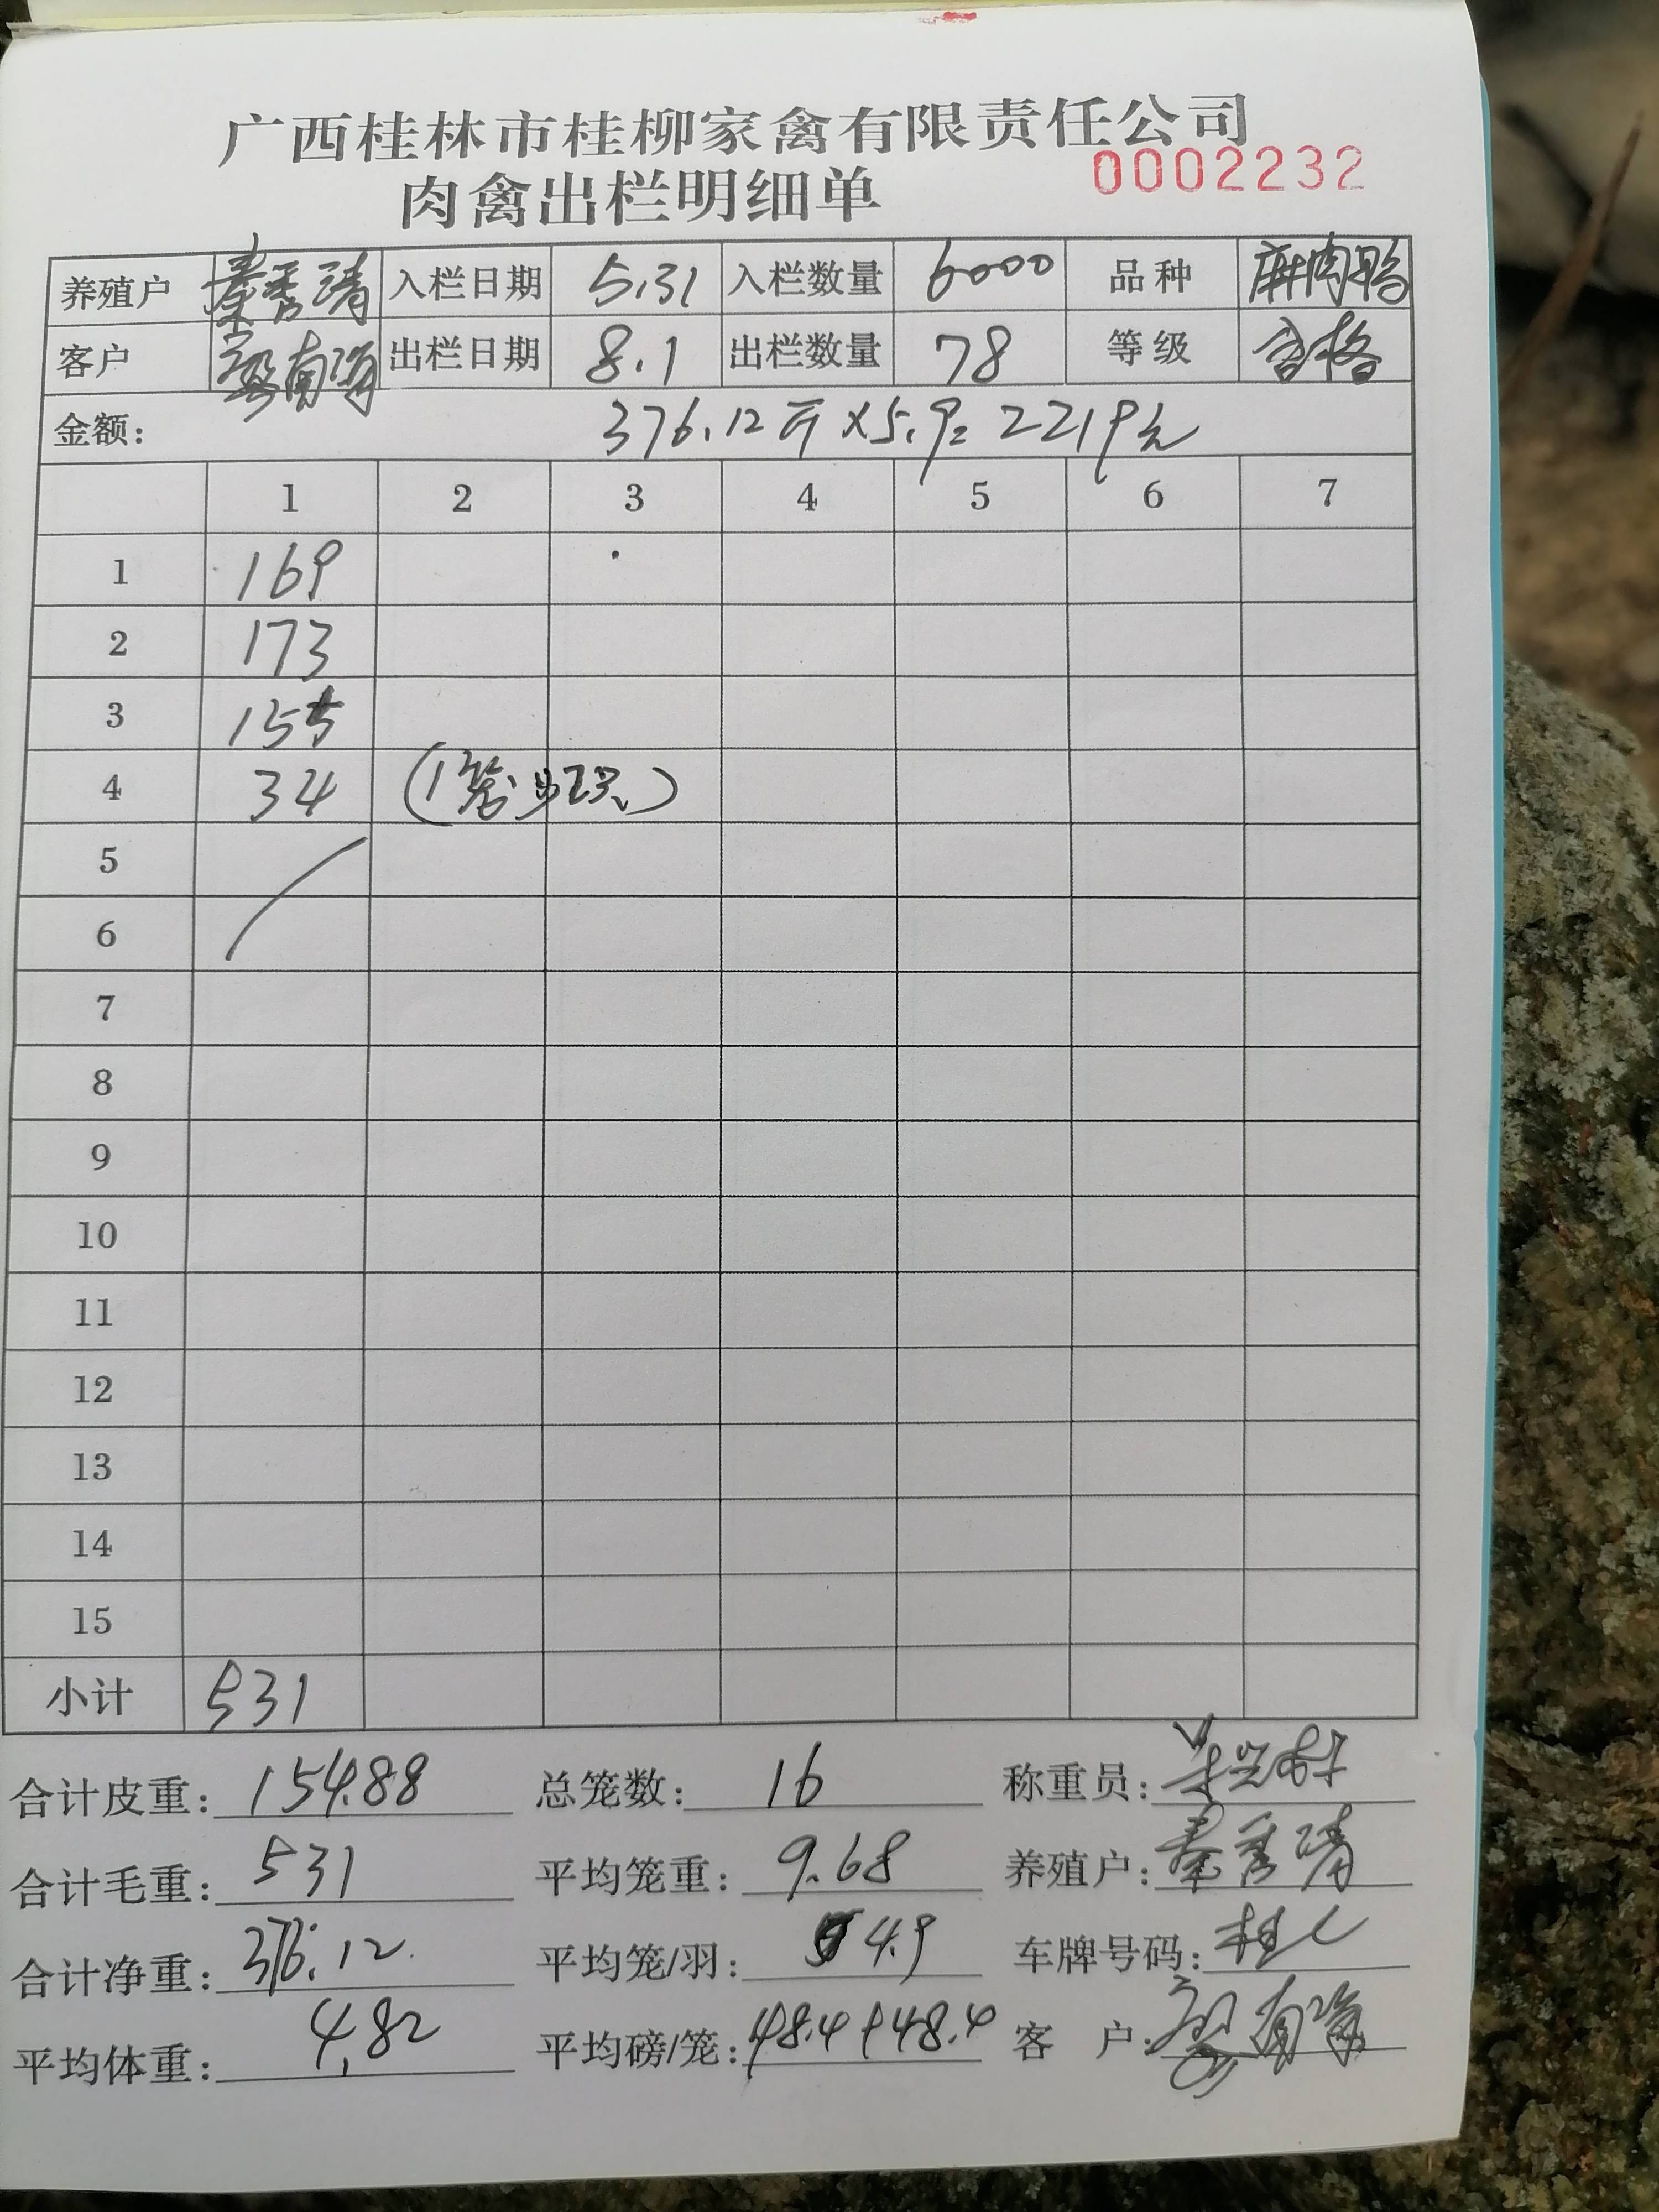 广西桂林市桂柳家禽有限责任公司
肉禽出栏明细单 0002232
养殖户 秦秀清 入栏日期 5.31 入栏数量 6000 品种 麻肉鸭
客户 南海 出栏日期 8.1 出栏数量 78 等级 合格
金额: 376.12斤×5.9=2219元
1 2 3 4 5 6 7
1 169
2 173
3 155
4 34 (1笼
5
6
7
8
9
10
11
12
13
14
15
小计 531
合计皮重: 154.88 总笼数: 16 称重员:
合计毛重: 531 平均笼重: 9.68 养殖户: 秦秀清
合计净重: 376.12 平均笼/羽: 4.9 车牌号码: 桂
平均体重: 4.82 平均磅/笼: 48.4+48.4 客户: 南海